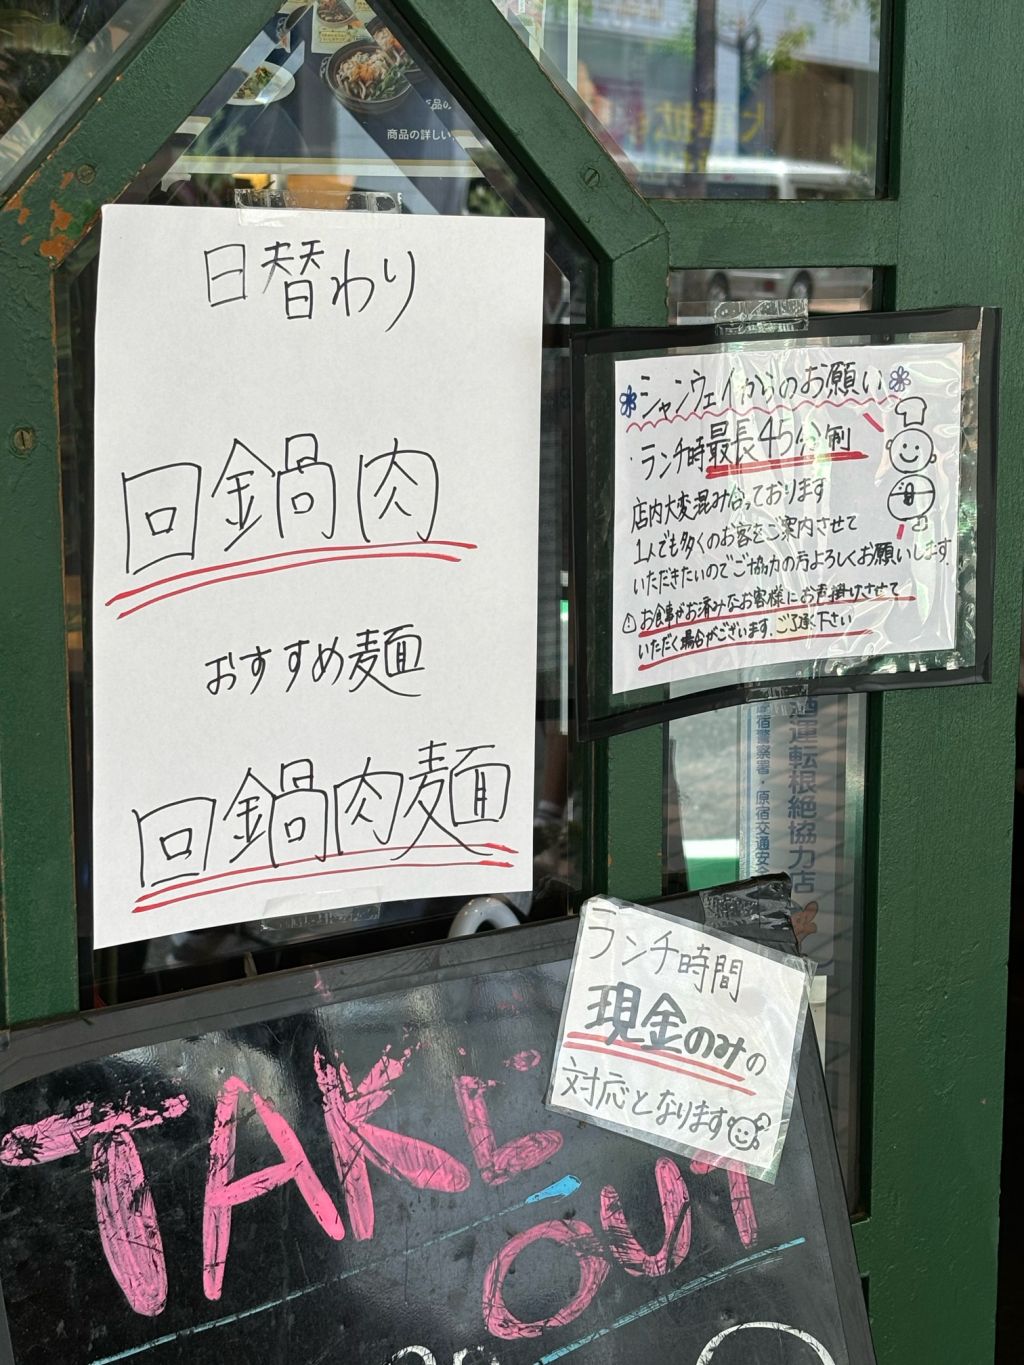 商品の詳しい
日替わり
回鍋肉
おすすめ麺
回鍋肉麺
シャンウェイからのお願い
・ランチ時最長45分制
店内大変混み合っております
1人でも多くのお客をご案内させて
いただきたいのでご協力の方よろしくお願いします.
お食事がお済みなお客様にお声掛けさせて
いただく場合がございます.ご了承下さい
酒運転根絶協力店
宿警察署・原宿交通安全
ランチ時間
現金のみの
対応となります
TAKE
OUT